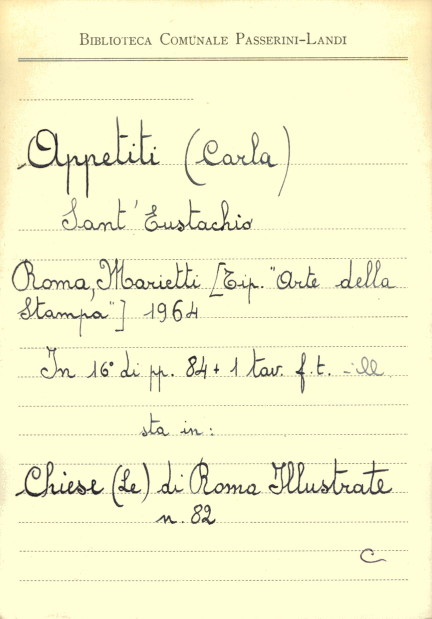 BIBLIOTECA COMUNALE PASSERINI-LANDI
Appetiti (Carla)
Sant' Eustachio
Roma, Marietti [Tip. "Arte della
Stampa"] 1964
In 16° di pp. 84 + 1 tav. f. t. - ill
sta in:
Chiese (Le) di Roma Illustrate
n. 82
C